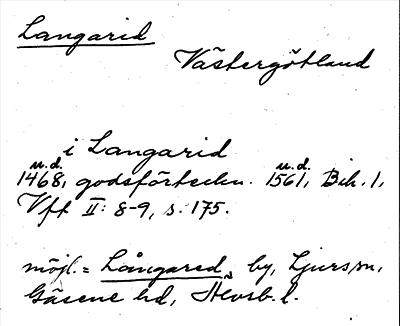 Langarid
Västergötland
i Langarid
u.d. u.d.
1468, godsförteckn. 1561, Bih. 1,
Vft II: 8-9, s. 175.
möjl. = Långared, by, Ljurs sn,
Gäsene hd, Älvsb. l.